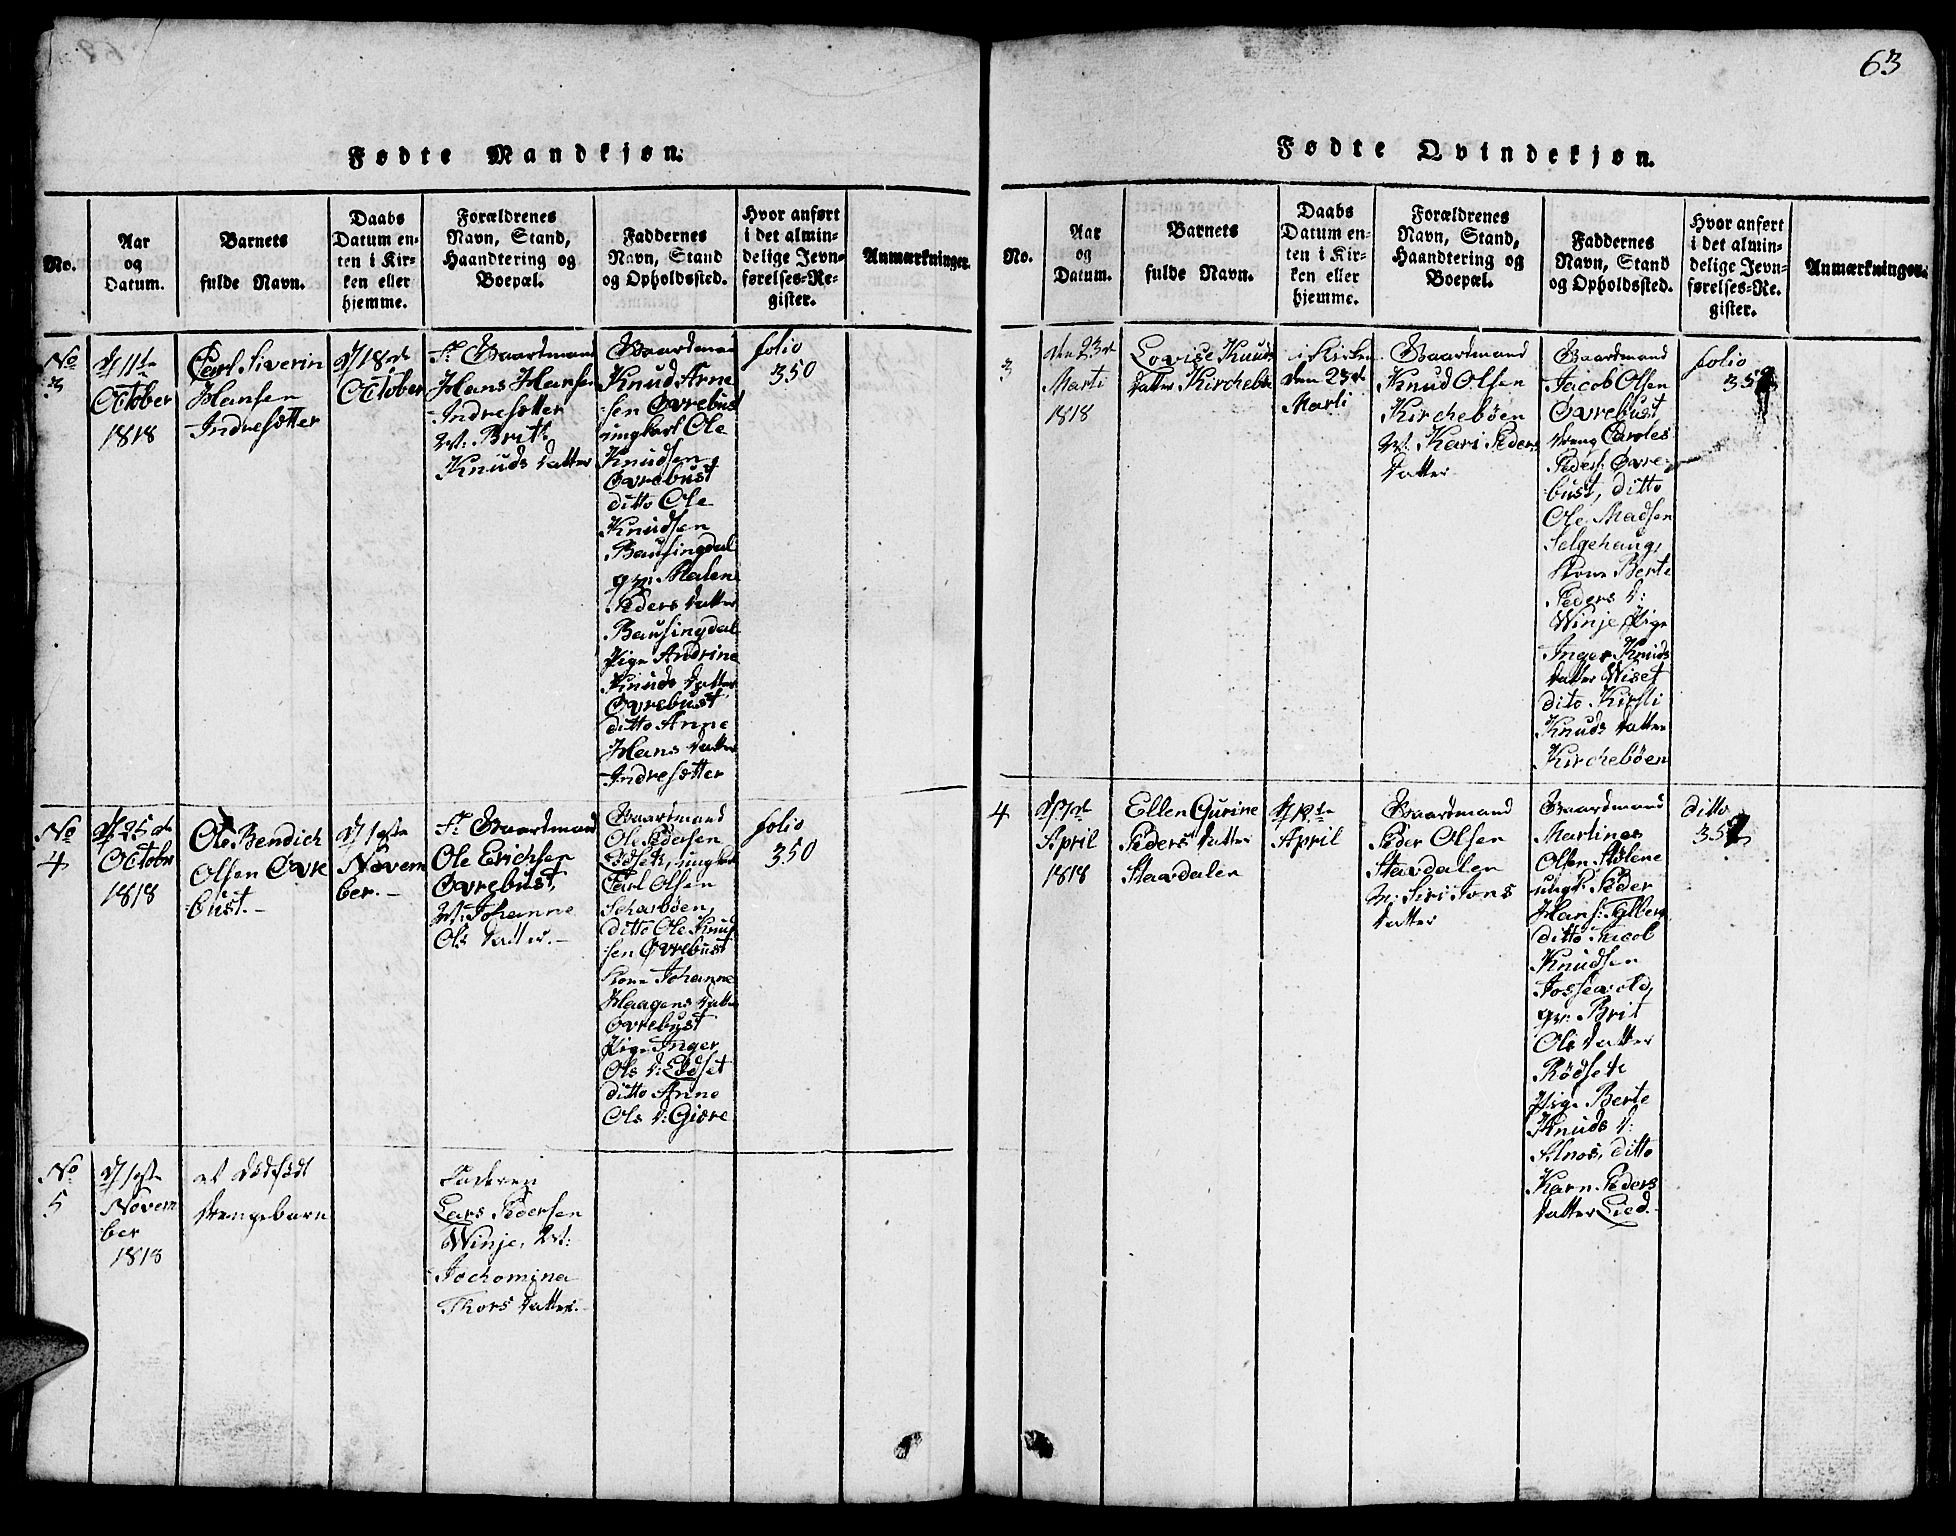 63
Fødte Mandkjøn.
No.
Aar
og
Datum.
Barnets
fulde Navn.
Daabs
Datum en-
ten i Kir-
ken eller
hjemme.
Forældrenes
Navn, Stand,
Haandtering og
Boepæl.
Faddernes
Navn, Stand
og Opholdssted.
Hvor anført
i det almin-
delige Jevn-
førelses-Re-
gister.
Anmærkninger.
No
3
11te
October
1818
Carl Siverin
Hansen
Indresætter
18de
October
F: Gaardmand
Hans Hansen
Indresætter
M: Brit
Knuds datter
Gaardmand
Knud Arne
sen Øvrebust
ungkarl Ole
Knudsen
Øvrebust
ditto Ole
Knudsen
Bausingdal
qv: Malene
Peders datter
Bausingdal
Pige Andrine
Knuds datter
Øvrebust
ditto Anne
Hans datter
Indresætter
folio
350
No
4
25de
Octobr
1818
Ole Bendich
Olsen Øvre
bust.-
1ste
Novem
ber.-
F: Gaardmand
Ole Erichsen
Øvrebust,
M: Johanne
Ols datter.-
Gaardmand
Ole Pedersen
Lødset, ungkarl
Carl Olsen
Scharbøen,
ditto Ole Knud
sen Øvrebust
Kone Johanne
Haagens datter
Øvrebust
Pige Inger
Ols d: Lødset
ditto Anne
Ols d: Giære
folio
350
No
5
1ste
Novem
ber
1818
et dødfødt
drengebarn
Faderen
Lars Pedersen
Winje, M:
Jochomina
Thors datter.-
Fødte Qvindekjøn.
No.
Aar
og
Datum.
Barnets
fulde Navn.
Daabs
Datum en-
ten i Kir-
ken eller
hjemme.
Forældrenes
Navn, Stand,
Haandtering og
Boepæl.
Faddernes
Navn, Stand
og Opholdssted.
Hvor anført
i det almin-
delige Jevn-
førelses-Re-
gister.
Anmærkninger.
3
den 23de
Marti
1818
Lovise Knuds
datter Kirchebø
i Kirken
den 23de
Marti
Gaardmand
Knud Olsen
Kirchebøen
M: Kari Peders
datter
Gaardmand
Jacob Olsen
Øvrebust
dreng Caroles
Peders: Øvre-
bust, ditto
Ole Madsen
Selgehaug,
Kone Berte
Peders d:
Winje, Pige
Inger Knuds
datter Wiset
dito Kirsti
Knuds datter
Kirchebøen
folio
4
April
1818
Ellen Gurine
Peders datter
Stavdalen
12te
April
Gaardmand
Peder Olsen
Stavdalen
M: Siri Jons
datter
Gaardmand
Martines
Olsen Stølene
ungk: Peder
Hans:
ditto Jacob
Knudsen
qv: Brit
Ols datter
Rødset
Pige Berte
Knuds d:
Alnos, ditto
Karn Peders
datter Lied.-
ditto
352